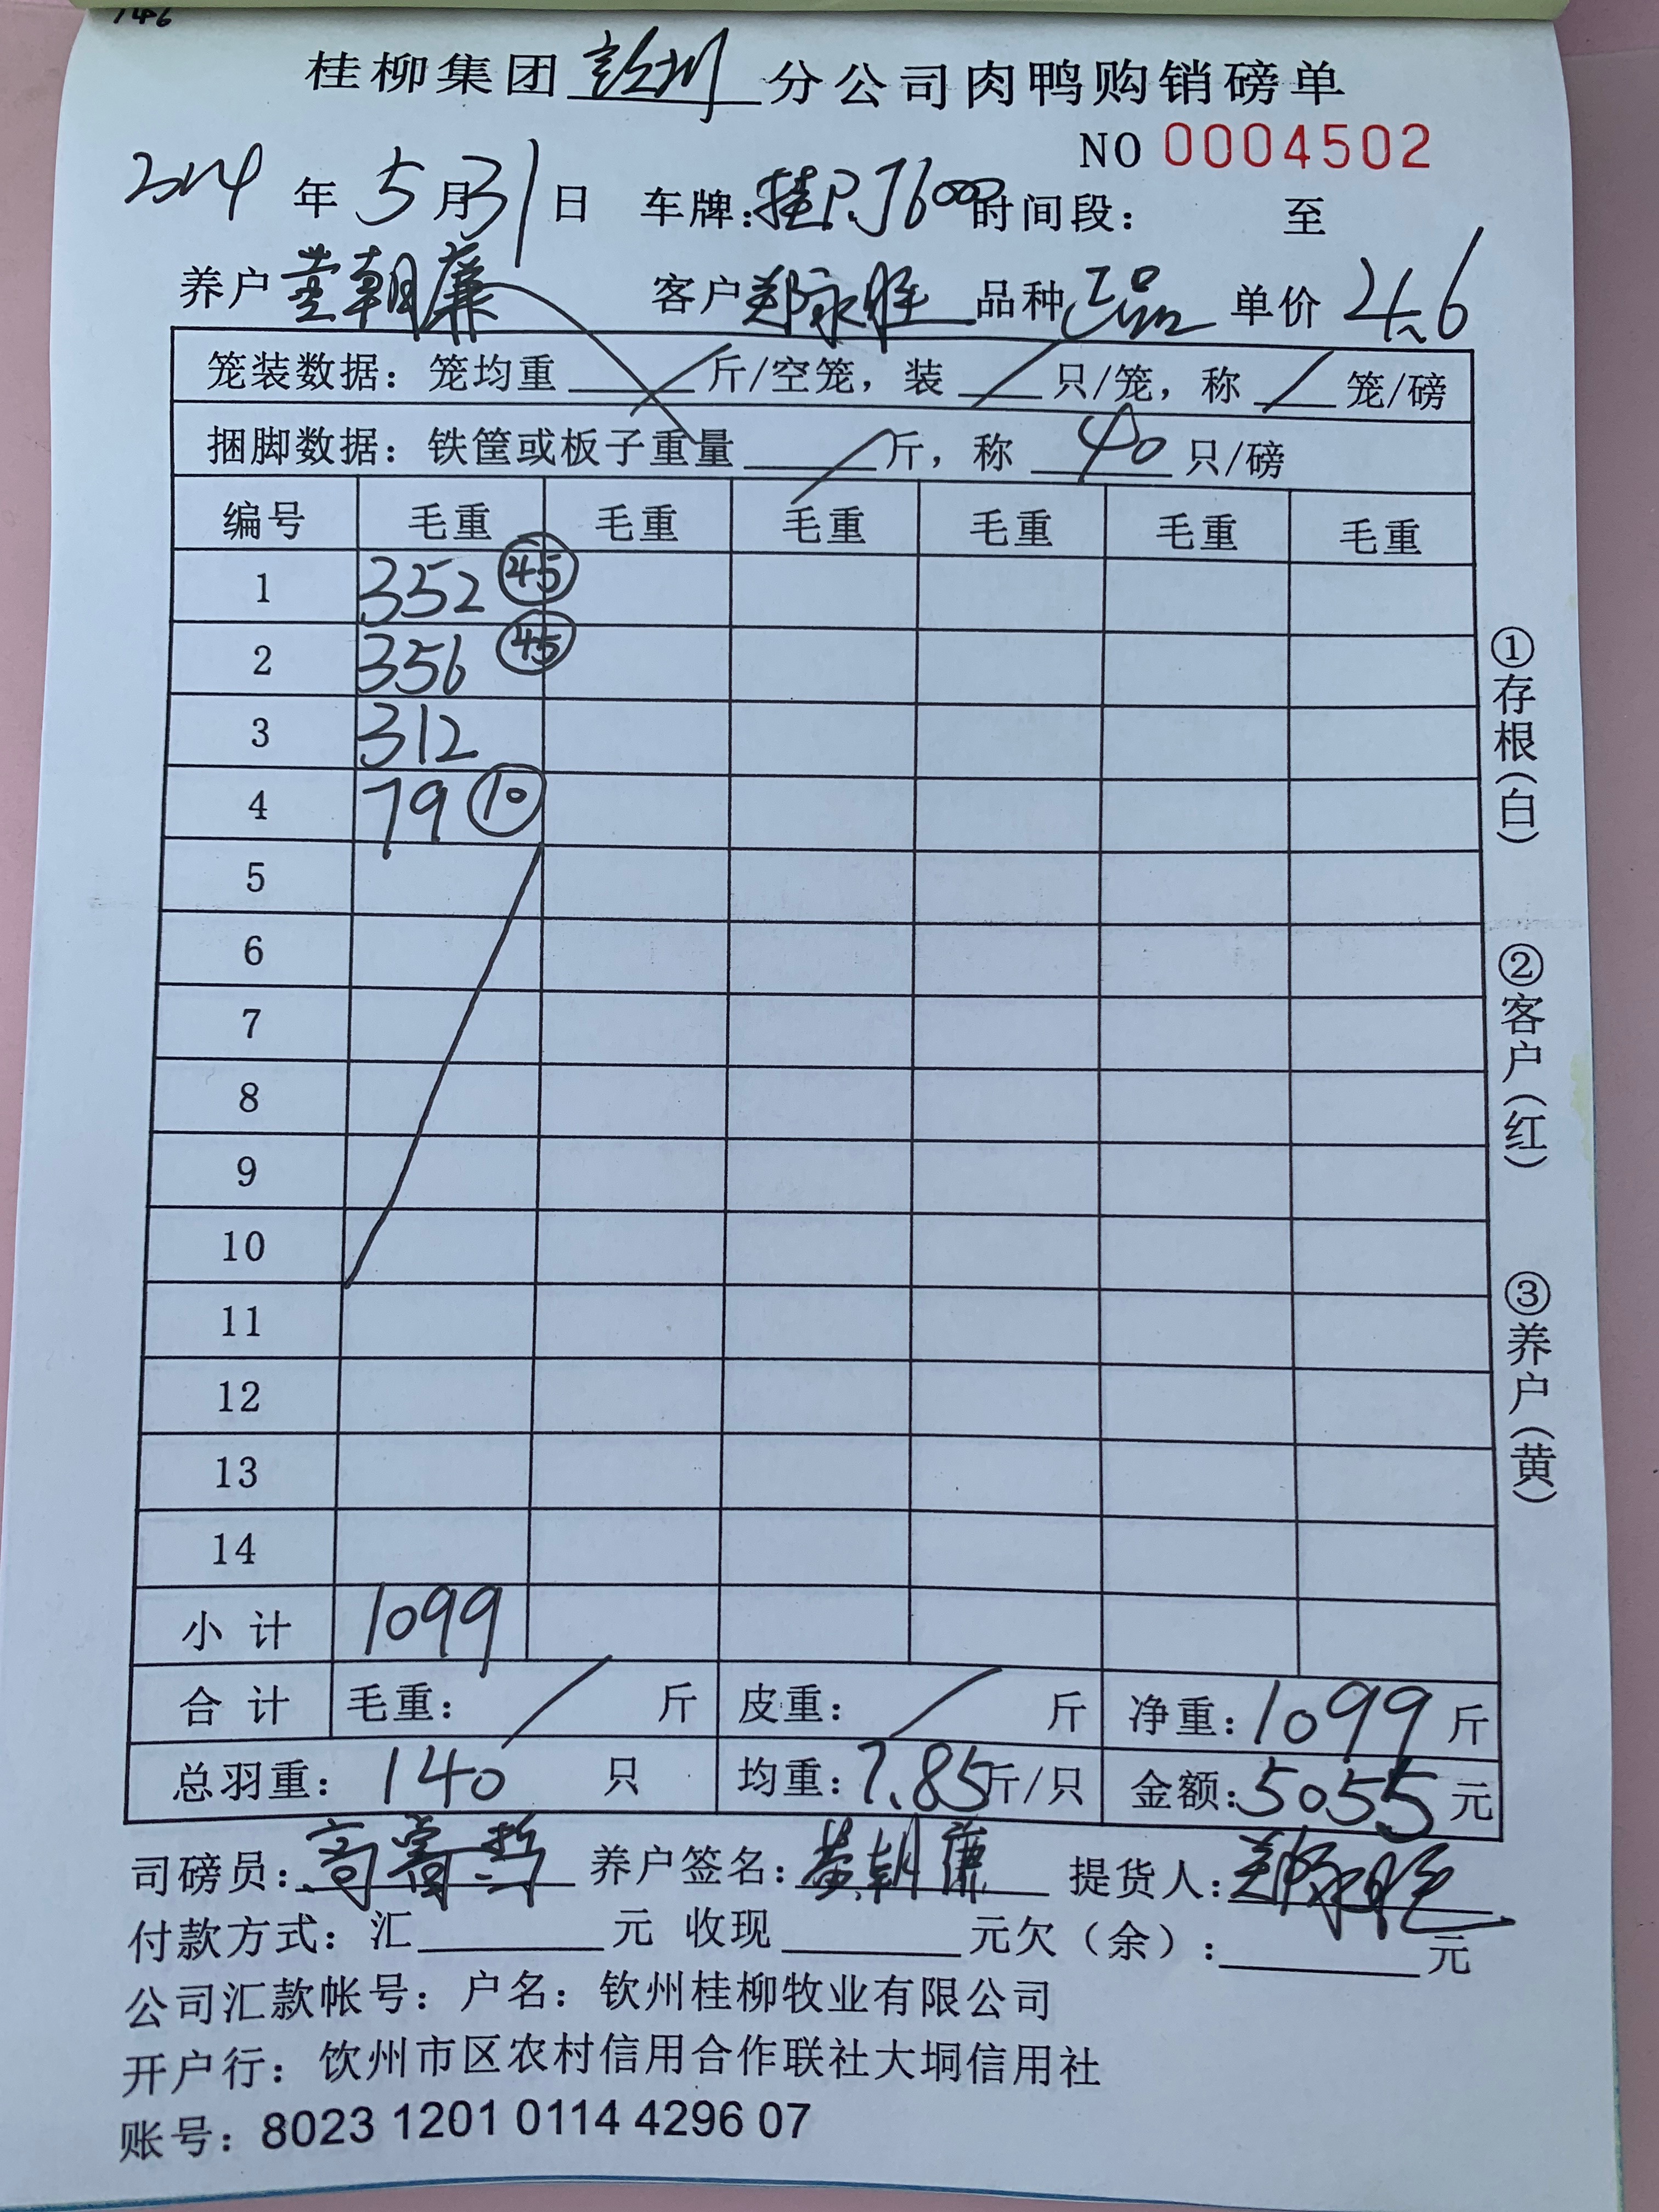 146
桂柳集团钦州分公司肉鸭购销磅单
NO 0004502
2024年5月31日 车牌:桂P.J6000时间段: 至
养户黄朝廉 客户郑永胜 品种正品 单价4.6
笼装数据:笼均重 / 斤/空笼,装 / 只/笼,称 / 笼/磅
捆脚数据:铁筐或板子重量 / 斤,称 40 只/磅
编号 毛重 毛重 毛重 毛重 毛重 毛重
1 352 45
2 356 45
3 312
4 79 10
5
6
7
8
9
10
11
12
13
14
小计 1099
合计 毛重: / 斤 皮重: / 斤 净重:1099斤
总羽重:140 只 均重:7.85斤/只 金额:5055元
司磅员: 养户签名:黄朝廉 提货人:郑永胜
付款方式:汇 元 收现 元欠(余): 元
公司汇款帐号:户名:钦州桂柳牧业有限公司
开户行:钦州市区农村信用合作联社大垌信用社
账号:8023 1201 0114 4296 07
①存根(白)
②客户(红)
③养户(黄)